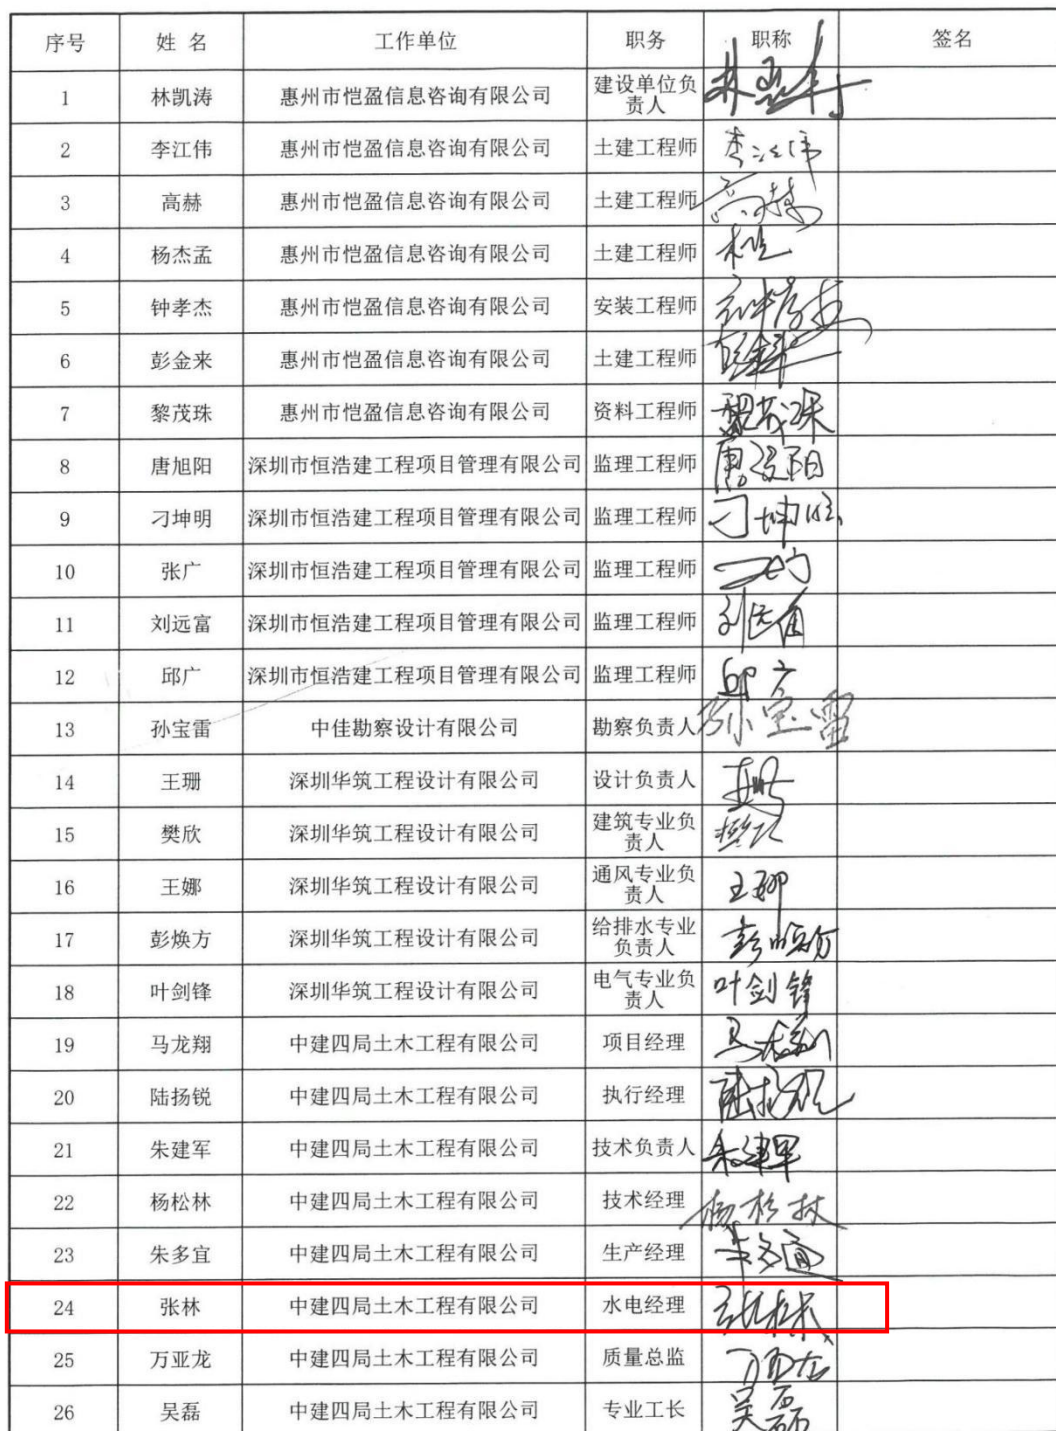 序号 姓 名 工作单位 职务 职称 签名
1 林凯涛 惠州市恺盈信息咨询有限公司 建设单位负
责人
2 李江伟 惠州市恺盈信息咨询有限公司 土建工程师 李江伟
3 高赫 惠州市恺盈信息咨询有限公司 土建工程师 高赫
4 杨杰孟 惠州市恺盈信息咨询有限公司 土建工程师
5 钟孝杰 惠州市恺盈信息咨询有限公司 安装工程师
6 彭金来 惠州市恺盈信息咨询有限公司 土建工程师
7 黎茂珠 惠州市恺盈信息咨询有限公司 资料工程师 黎茂珠
8 唐旭阳 深圳市恒浩建工程项目管理有限公司 监理工程师 唐旭阳
9 刁坤明 深圳市恒浩建工程项目管理有限公司 监理工程师 刁坤明
10 张广 深圳市恒浩建工程项目管理有限公司 监理工程师
11 刘远富 深圳市恒浩建工程项目管理有限公司 监理工程师 刘远富
12 邱广 深圳市恒浩建工程项目管理有限公司 监理工程师 邱广
13 孙宝雷 中佳勘察设计有限公司 勘察负责人 孙宝雷
14 王珊 深圳华筑工程设计有限公司 设计负责人 王珊
15 樊欣 深圳华筑工程设计有限公司 建筑专业负
责人 樊欣
16 王娜 深圳华筑工程设计有限公司 通风专业负
责人 王娜
17 彭焕方 深圳华筑工程设计有限公司 给排水专业
负责人 彭焕方
18 叶剑锋 深圳华筑工程设计有限公司 电气专业负
责人 叶剑锋
19 马龙翔 中建四局土木工程有限公司 项目经理 马龙翔
20 陆扬锐 中建四局土木工程有限公司 执行经理 陆扬锐
21 朱建军 中建四局土木工程有限公司 技术负责人 朱建军
22 杨松林 中建四局土木工程有限公司 技术经理 杨松林
23 朱多宜 中建四局土木工程有限公司 生产经理 朱多宜
24 张林 中建四局土木工程有限公司 水电经理 张林
25 万亚龙 中建四局土木工程有限公司 质量总监 万亚龙
26 吴磊 中建四局土木工程有限公司 专业工长 吴磊